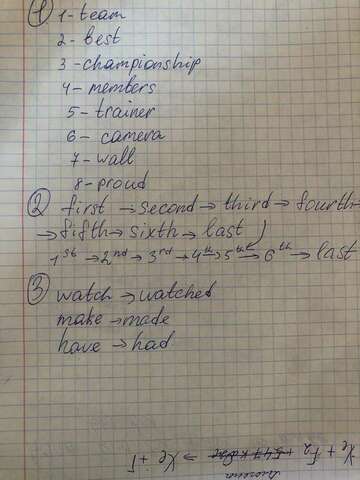 1
1- team
2- best
3 -championship
4- members
5 - trainer
6- camera
7- wall
8- proud
2 first → second → third → fourth →
→ fifth → sixth → last
1st → 2nd → 3rd → 4th → 5th → 6th → last
3 watch → watched
make → made
have → had
Xe + F2 → Xe + F